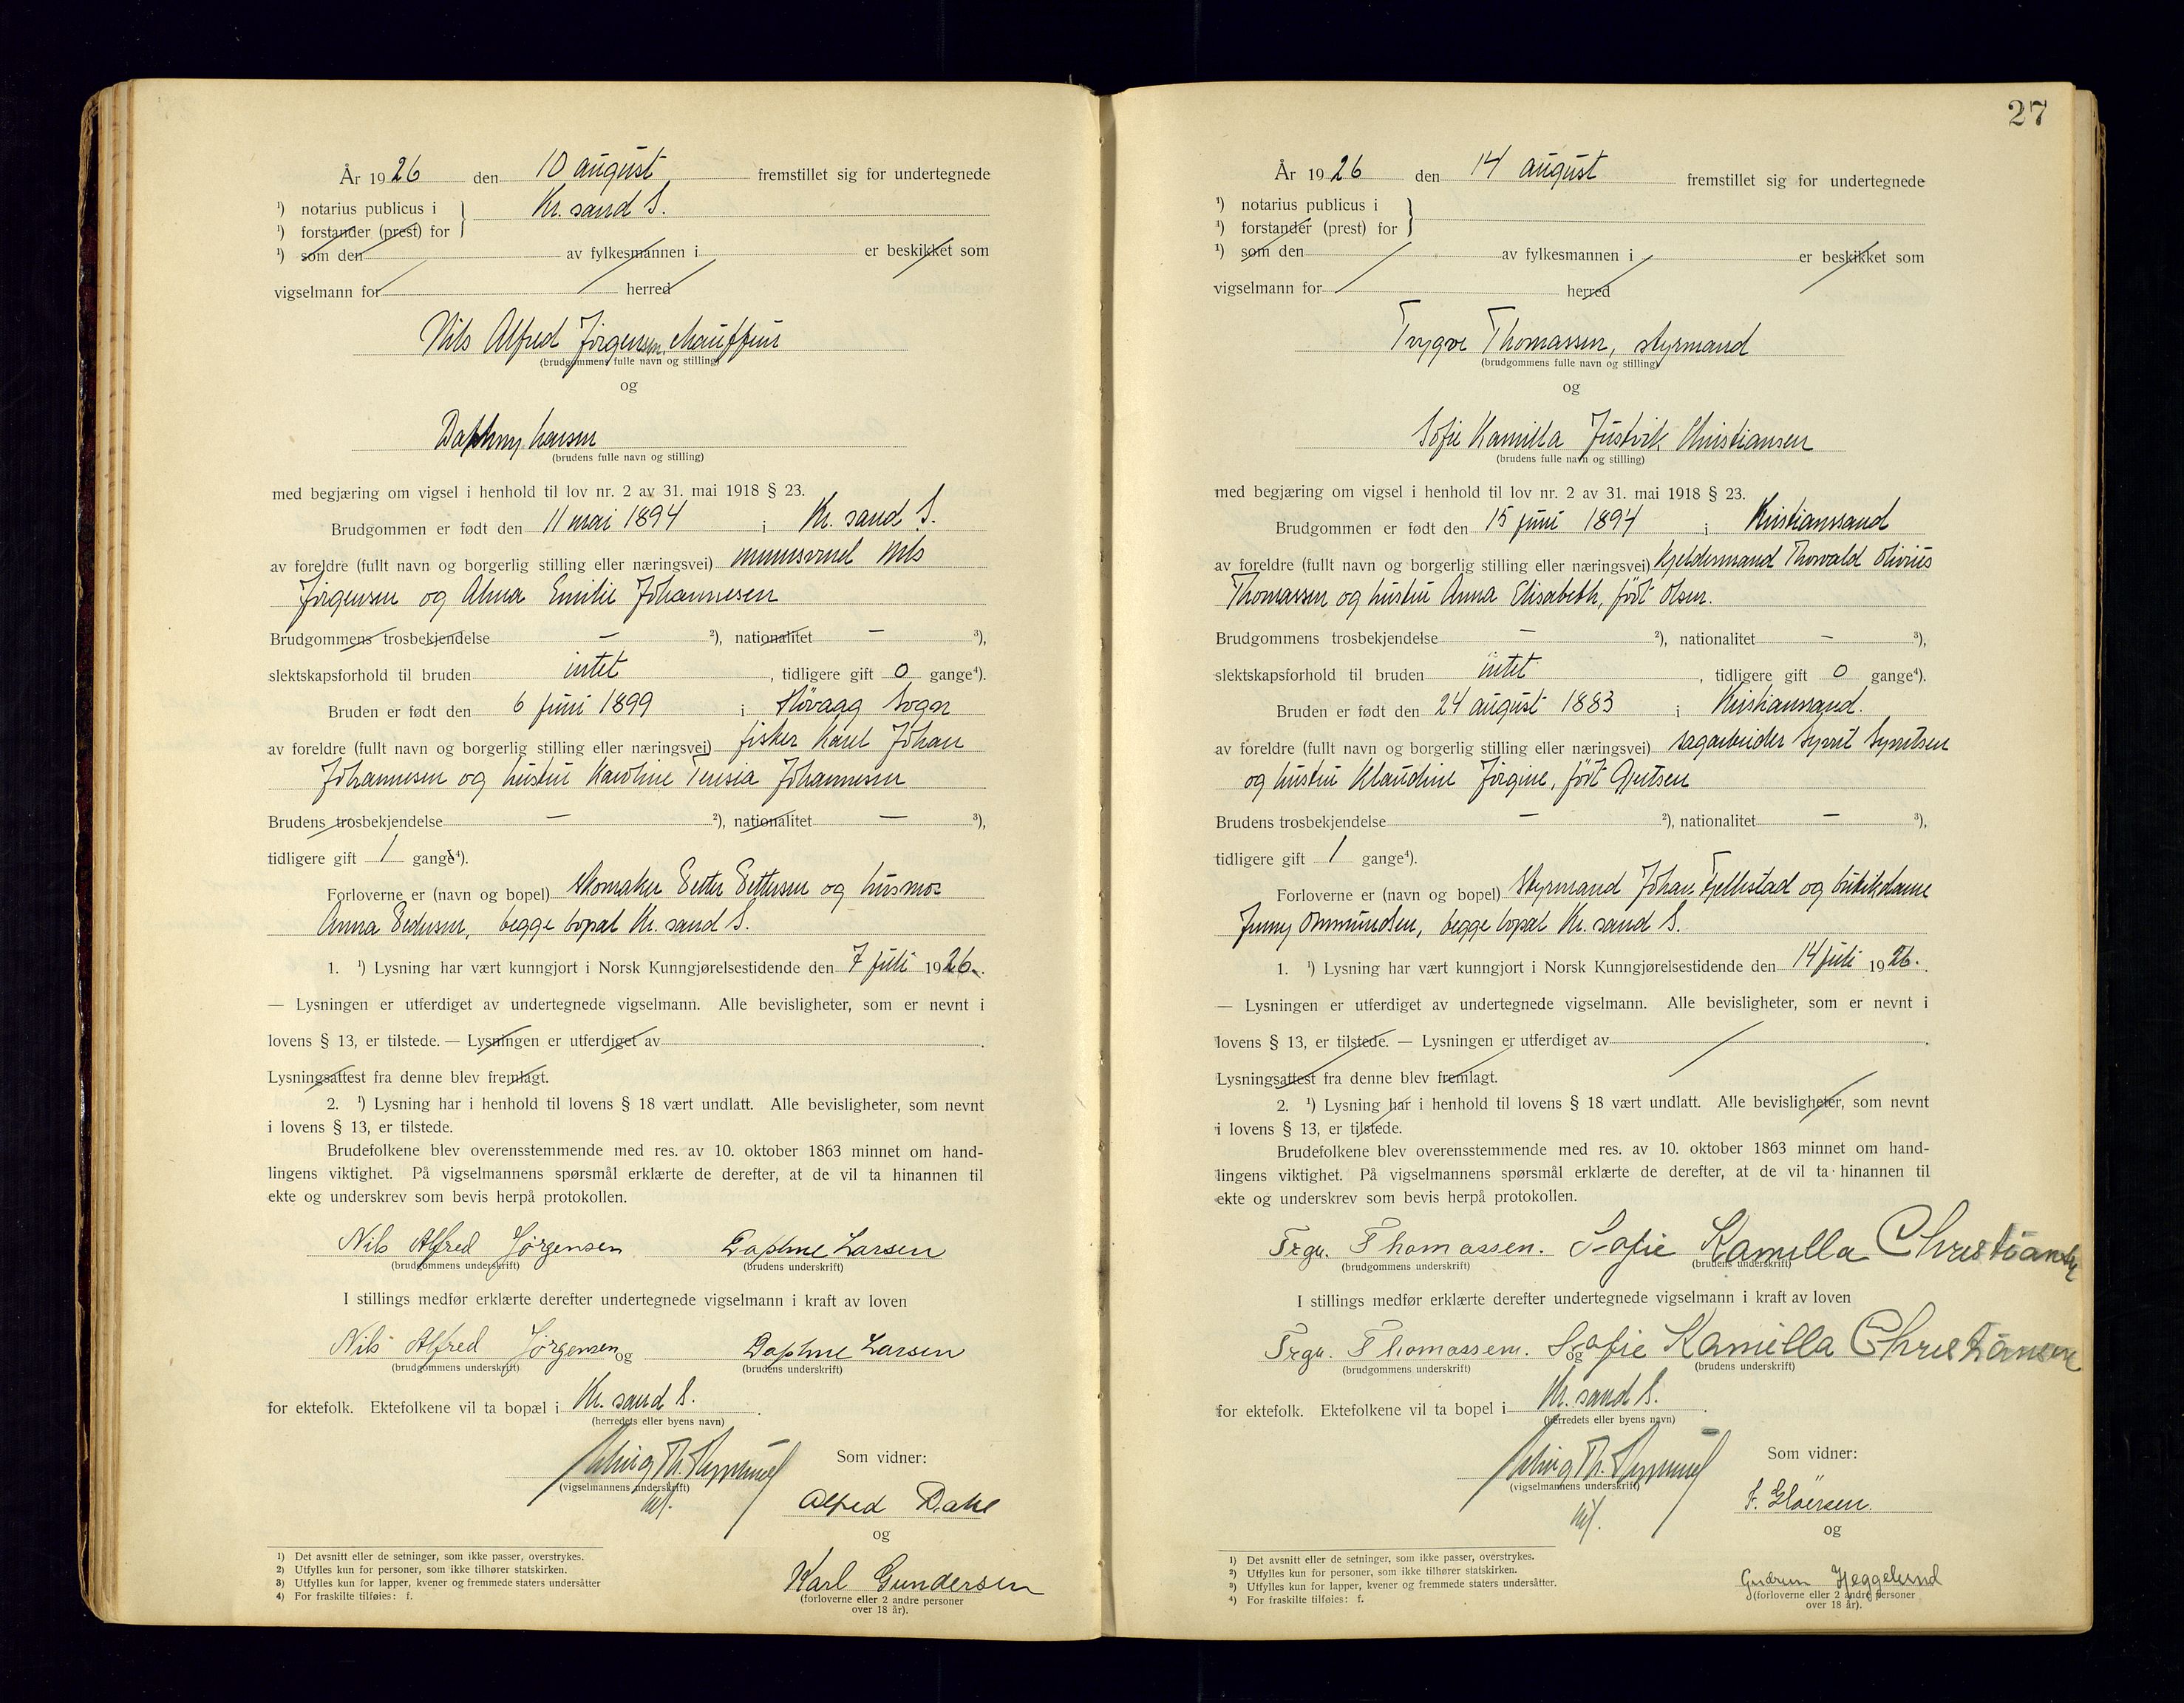 År 1926 den 10 august fremstillet sig for undertegnede
¹) notarius publicus i } Kr. sand S.
¹) forstander (prest) for
¹) som den av fylkesmannen i er beskikket som
vigselmann for herred
Nils Alfred Jörgensen, chauffeur
(brudgommens fulle navn og stilling)
og
Daphny Larsen
(brudens fulle navn og stilling)
med begjæring om vigsel i henhold til lov nr. 2 av 31. mai 1918 § 23.
Brudgommen er født den 11 mai 1894 i Kr. sand S.
av foreldre (fullt navn og borgerlig stilling eller næringsvei) Nils
Jörgensen og Alma Emilie Johannesen
Brudgommens trosbekjendelse — ²), nationalitet — ³),
slektskapsforhold til bruden intet, tidligere gift 0 gange⁴).
Bruden er født den 6 juni 1899 i Hövaag Sogn
av foreldre (fullt navn og borgerlig stilling eller næringsvei) fisker Karl Johan
Johannesen og hustru Karoline Teresia Johannesen
Brudens trosbekjendelse — ²), nationalitet — ³),
tidligere gift 1 gange⁴).
Forloverne er (navn og bopel) skomaker Petter Pettersen og husmor
Anna Pedersen, begge bopæl Kr. sand S.
1. ¹) Lysning har vært kunngjort i Norsk Kunngjørelsestidende den 7 juli 1926.
— Lysningen er utferdiget av undertegnede vigselmann. Alle bevisligheter, som er nevnt i
lovens § 13, er tilstede. — Lysningen er utferdiget av .
Lysningsattest fra denne blev fremlagt.
2. ¹) Lysning har i henhold til lovens § 18 vært undlatt. Alle bevisligheter, som nevnt
i lovens § 13, er tilstede.
Brudefolkene blev overensstemmende med res. av 10. oktober 1863 minnet om hand-
lingens viktighet. På vigselmannens spørsmål erklærte de derefter, at de vil ta hinannen til
ekte og underskrev som bevis herpå protokollen.
Nils Alfred Jørgensen Daphne Larsen
(brudgommens underskrift) (brudens underskrift)
I stillings medfør erklærte derefter undertegnede vigselmann i kraft av loven
Nils Alfred Jørgensen og Daphne Larsen
(brudgommens underskrift) (brudens underskrift)
for ektefolk. Ektefolkene vil ta bopæl i Kr. sand S.
(herredets eller byens navn)
Som vidner:
(vigselmannens underskrift)
Alfred Dahl
og
Karl Gundersen
(forloverne eller 2 andre personer
over 18 år).
1) Det avsnitt eller de setninger, som ikke passer, overstrykes.
2) Utfylles kun for personer, som ikke tilhører statskirken.
3) Utfylles kun for lapper, kvener og fremmede staters undersåtter
4) For fraskilte tilføies: f.
27
År 1926 den 14 august fremstillet sig for undertegnede
¹) notarius publicus i }
¹) forstander (prest) for
¹) som den av fylkesmannen i er beskikket som
vigselmann for herred
Trygve Thomassen, styrmand
(brudgommens fulle navn og stilling)
og
Sofie Kamilla Justvik Christiansen
(brudens fulle navn og stilling)
med begjæring om vigsel i henhold til lov nr. 2 av 31. mai 1918 § 23.
Brudgommen er født den 15 juni 1894 i Kristianssand
av foreldre (fullt navn og borgerlig stilling eller næringsvei) kjeldermand Thorvald Olivius
Thomassen og hustru Anna Elisabeth, født Olsen.
Brudgommens trosbekjendelse — ²), nationalitet — ³),
slektskapsforhold til bruden intet, tidligere gift 0 gange⁴).
Bruden er født den 24 august 1883 i Kristianssand.
av foreldre (fullt navn og borgerlig stilling eller næringsvei) sagarbeider Syvert Syvertsen
og hustru Klaudine Jörgine, født Gjertsen
Brudens trosbekjendelse — ²), nationalitet — ³),
tidligere gift 1 gange⁴).
Forloverne er (navn og bopel) Styrmand Johan Fjellestad og butikdame
Jenny Ommundsen, begge bopæl Kr. sand S.
1. ¹) Lysning har vært kunngjort i Norsk Kunngjørelsestidende den 14 juli 1926.
— Lysningen er utferdiget av undertegnede vigselmann. Alle bevisligheter, som er nevnt i
lovens § 13, er tilstede. — Lysningen er utferdiget av .
Lysningsattest fra denne blev fremlagt.
2. ¹) Lysning har i henhold til lovens § 18 vært undlatt. Alle bevisligheter, som nevnt
i lovens § 13, er tilstede.
Brudefolkene blev overensstemmende med res. av 10. oktober 1863 minnet om hand-
lingens viktighet. På vigselmannens spørsmål erklærte de derefter, at de vil ta hinannen til
ekte og underskrev som bevis herpå protokollen.
Trgv. Thomassen. Sofie Kamilla Christiansen
(brudgommens underskrift) (brudens underskrift)
I stillings medfør erklærte derefter undertegnede vigselmann i kraft av loven
Trgv. Thomassen. og Sofie Kamilla Christiansen
(brudgommens underskrift) (brudens underskrift)
for ektefolk. Ektefolkene vil ta bopel i Kr. sand S.
(herredets eller byens navn)
Som vidner:
(vigselmannens underskrift)
F. Gløersen.
og
Gudrun Heggelund
(forloverne eller 2 andre personer
over 18 år).
¹) Det avsnitt eller de setninger, som ikke passer, overstrykes.
²) Utfylles kun for personer, som ikke tilhører statskirken.
³) Utfylles kun for lapper, kvener og fremmede staters undersåtter.
⁴) For fraskilte tilføies: f.